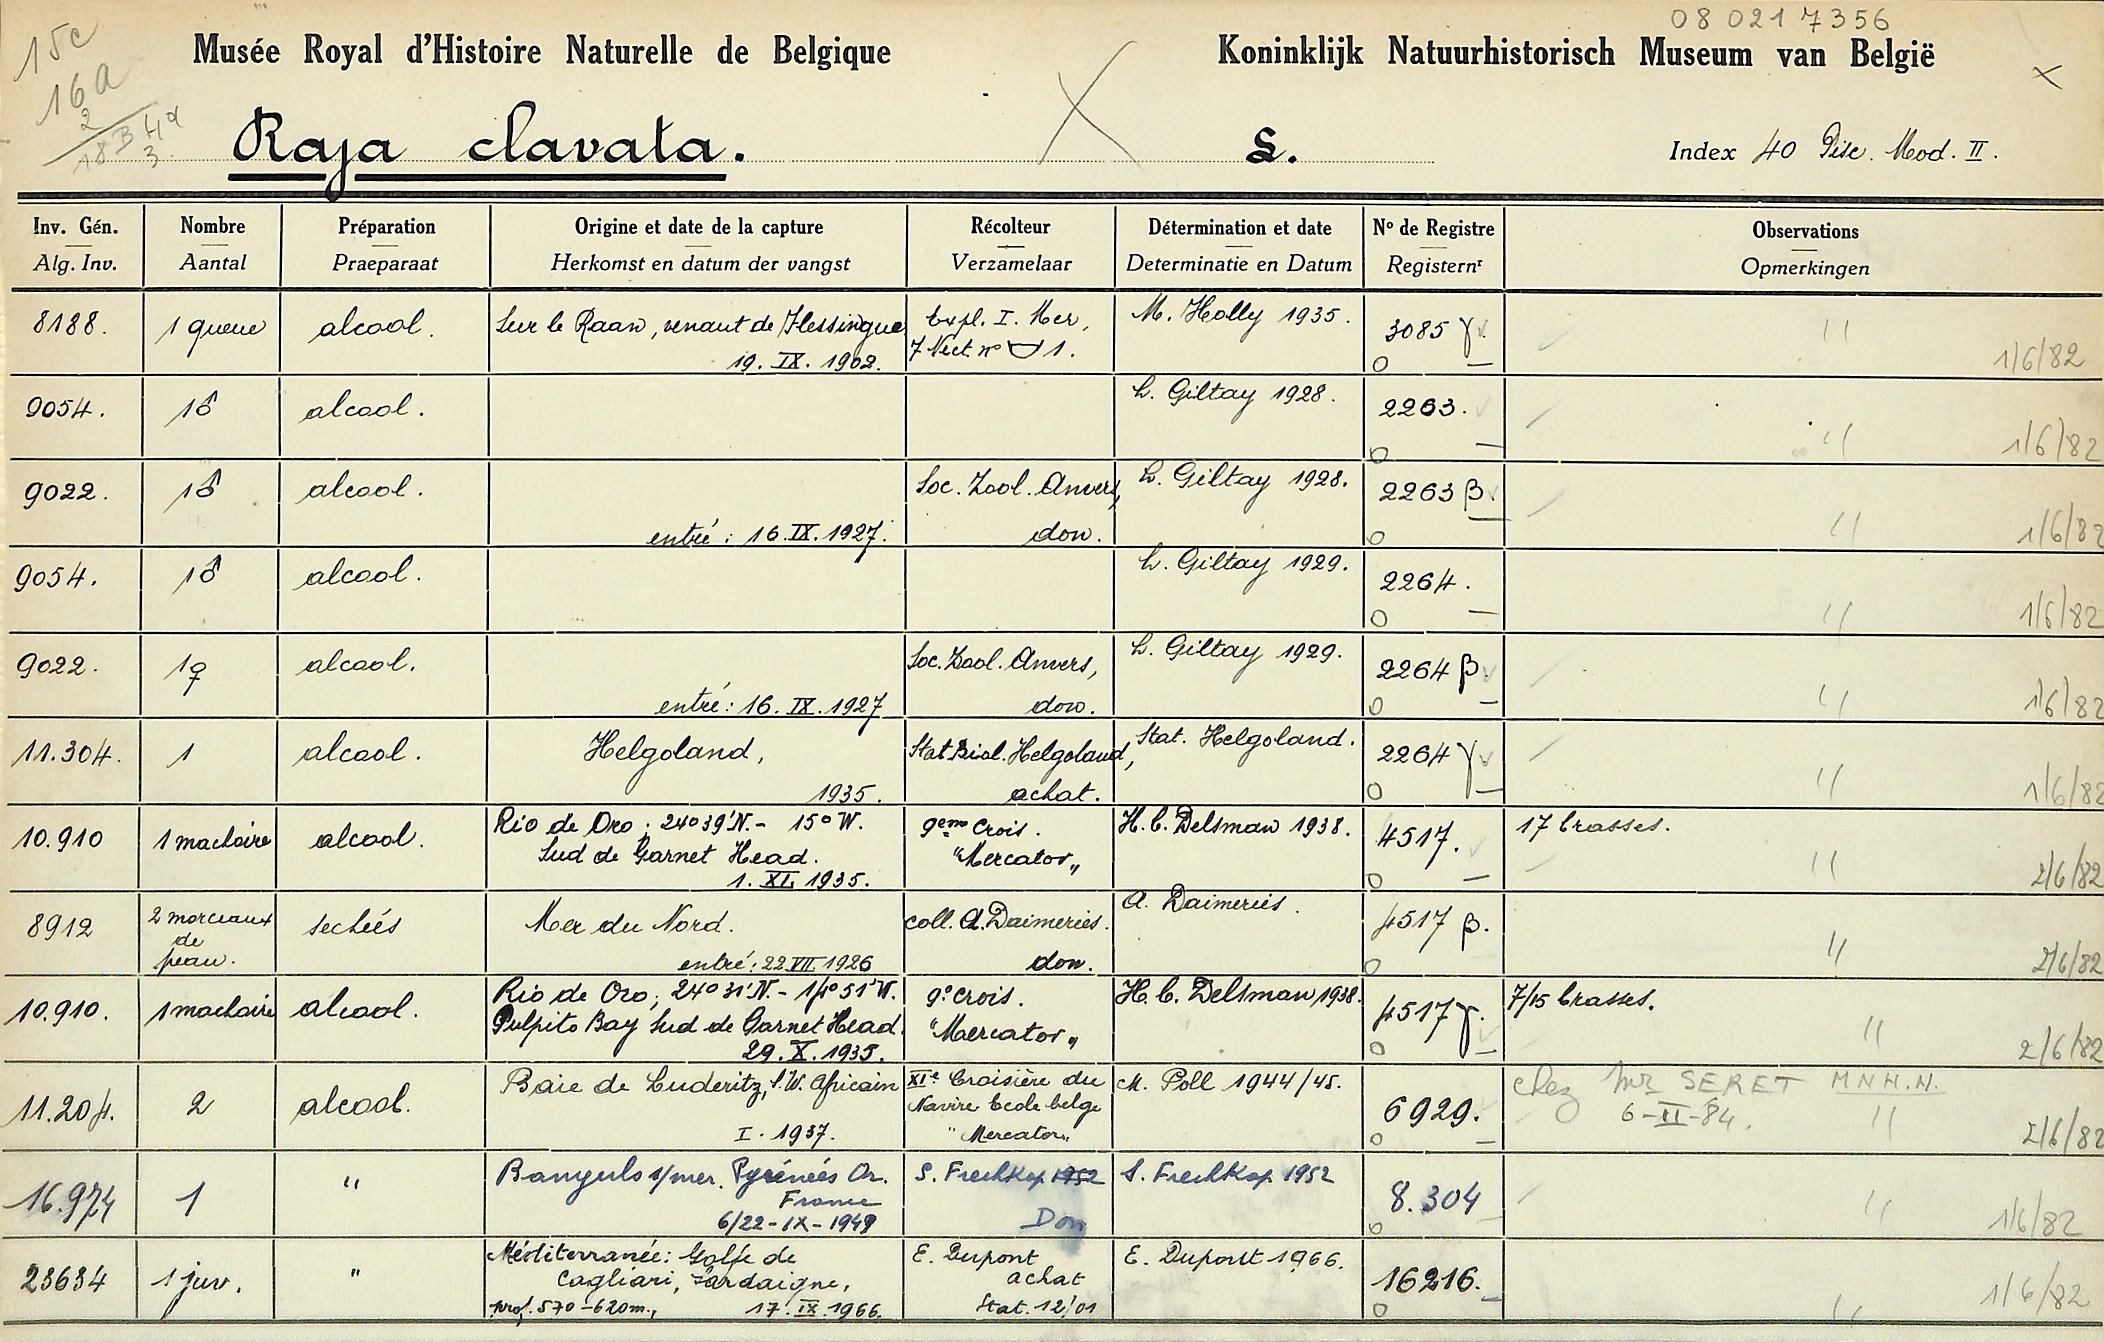 08 021 7356
15c
16a
2
18B 4a
3
Musée Royal d'Histoire Naturelle de Belgique
Koninklijk Natuurhistorisch Museum van België
Raja clavata. S. Index 40 Pisc. Mod. II.
Inv. Gén. Nombre Préparation Origine et date de la capture Récolteur Détermination et date No de Registre Observations
Alg. Inv. Aantal Praeparaat Herkomst en datum der vangst Verzamelaar Determinatie en Datum Registernr Opmerkingen
8188. 1 queue alcool. Sur le Raan, venant de Flessingue Expl. I. Mer, M. Holly 1935. 3085 γ. "
19. IX. 1902. 1. 0 — 1/6/82
9054. 1♂ alcool. L. Giltay 1928. 2263. "
0 — 1/6/82
9022. 1♂ alcool. Soc. Zool. Anvers, L. Giltay 1928. 2263 β. "
entré: 16. IX. 1927. don. 0 — 1/6/82
9054. 1♂ alcool. L. Giltay 1929. 2264. "
0 — 1/6/82
9022. 1♀ alcool. Soc. Zool. Anvers, L. Giltay 1929. 2264 β. "
entré: 16. IX. 1927 don. 0 — 1/6/82
11.304. 1 alcool. Helgoland, Stat. Biol. Helgoland, Stat. Helgoland. 2264 γ "
1935. achat. 0 — 1/6/82
10.910 1 machoire alcool. Rio de Oro; 24°39'N. - 15°W. 9eme Crois. H. C. Delsman 1938. 4517. 17 brasses.
Sud de Garnet Head. "Mercator" "
1. XI. 1935. 0 — 2/6/82
8912 2 morceaux de peau. sechés Mer du Nord. coll. A. Daimeries. A. Daimeries. 4517 β. "
entré: 22 VII 1926 don. 0 2/6/82
10.910. 1 machoire alcool. Rio de Oro; 24°31'N. - 14°51'W. 9e crois. H. C. Delsman 1938. 4517 γ. 7/15 brasses.
Pulpito Bay Sud de Garnet Head. "Mercator" "
29. X. 1935. 0 — 2/6/82
11.204. 2 alcool. Baie de Luderitz, S. W. Africain XIe Croisière du M. Poll 1944/45. 6929. chez Mr SERET M.N.H.N.
Navire Ecole belge 6-II-84. "
I. 1937. "Mercator" 0 — 2/6/82
16.974 1 " Banyuls s/mer. Pyrénées Or. S. Frechkop 1952 S. Frechkop 1952 8.304 "
France
6/22-IX-1949 Don 0 — 1/6/82
23634 1 juv. " Méditerranée: Golfe de E. Dupont E. Dupont 1966. 16216.
Cagliari, Sardaigne, achat
prof. 570-620m., 17. IX. 1966. Stat. 12'01 0 " 1/6/82